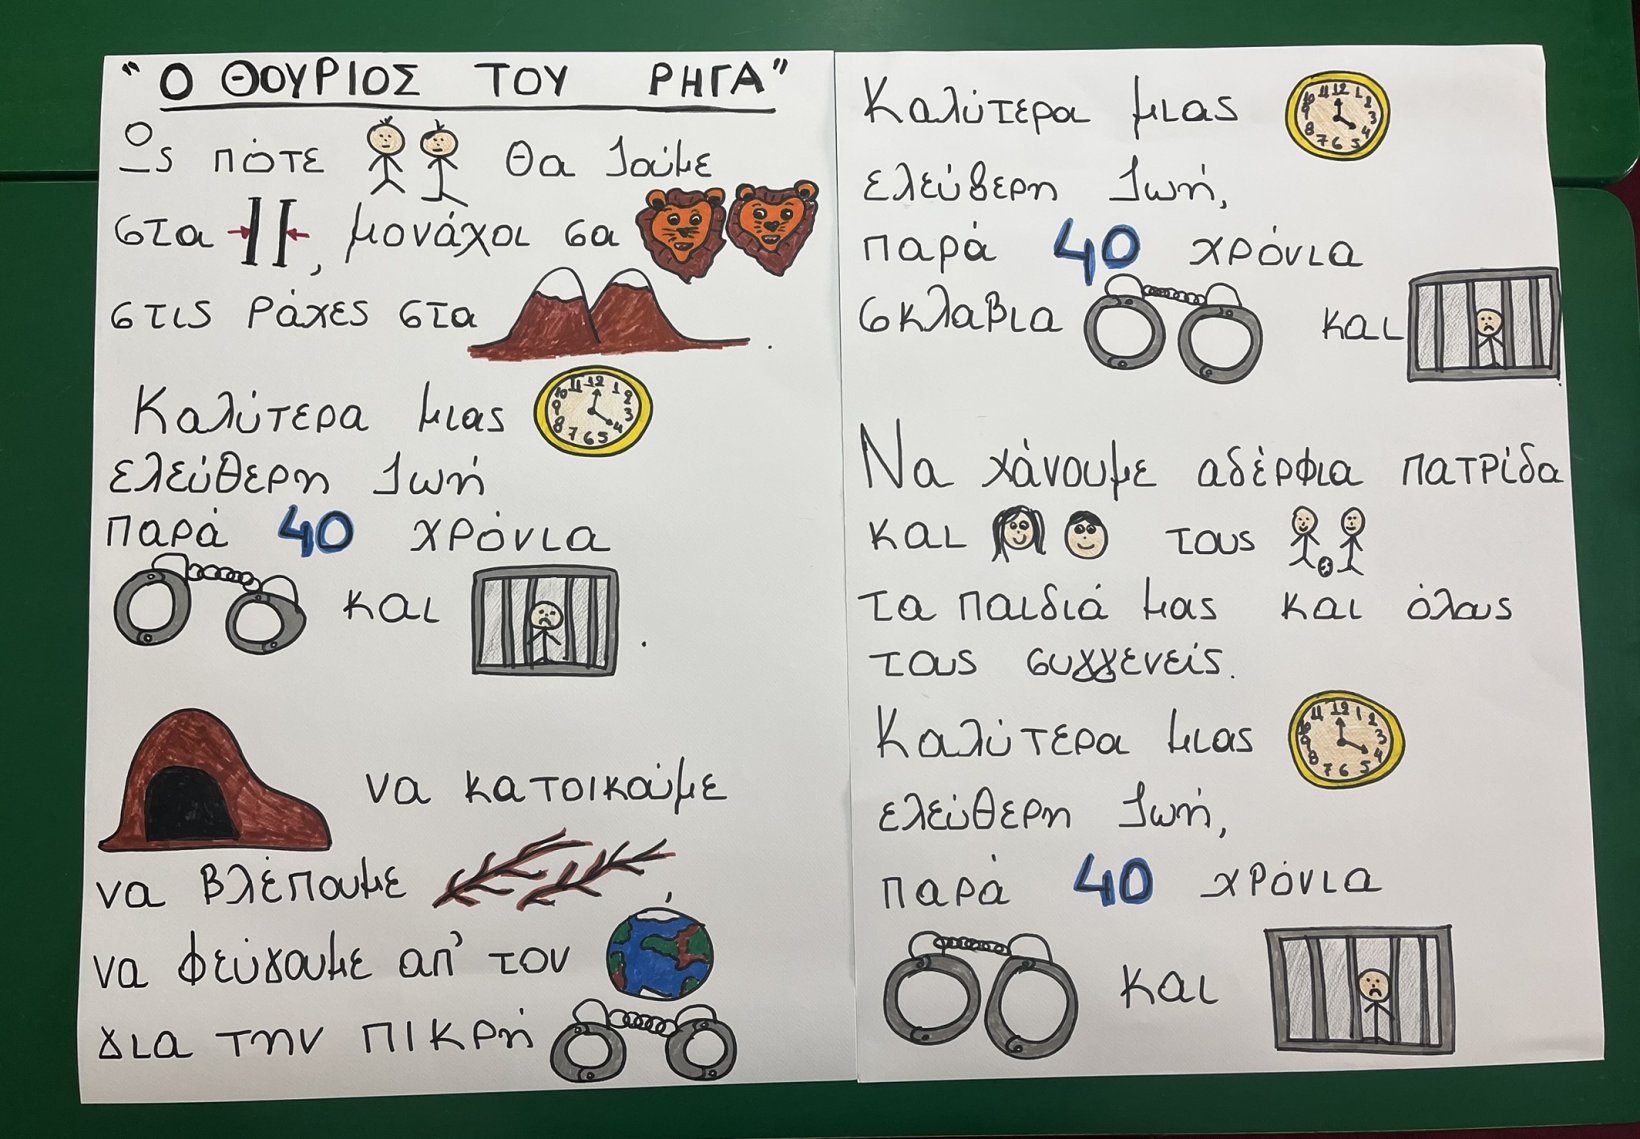 "Ο ΘΟΥΡΙΟΣ ΤΟΥ ΡΗΓΑ"
Ως πότε θα ζούμε
στα , μονάχοι σα
στις ράχες στα .
Καλύτερα μιας
ελεύθερη ζωή
παρά 40 χρόνια
και .
να κατοικούμε
να βλέπουμε ,
να φεύγουμε απ' τον
για την πικρή
Καλύτερα μιας
ελεύθερη ζωή,
παρά 40 χρόνια
σκλαβια και
Να χάνουμε αδέρφια πατρίδα
και τους
τα παιδιά μας και όλους
τους συγγενείς.
Καλύτερα μιας
ελεύθερη ζωή,
παρά 40 χρόνια
και